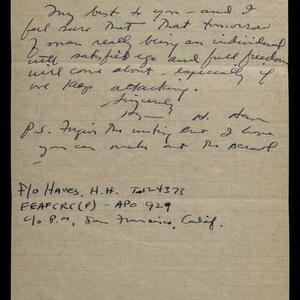 My best to you – and I
feel sure that that tomorrow
of man really being an individual
will satisfied ego and full freedom
will come about – especially if
we keep attacking.
Sincerely
H.
P.S. Forgive the writing but I hope
you can make out the scrawl
F/O HAYES, H.H. T-124373
FEAFCRC(P) – APO 929
c/o P.M., San Francisco, Calif.